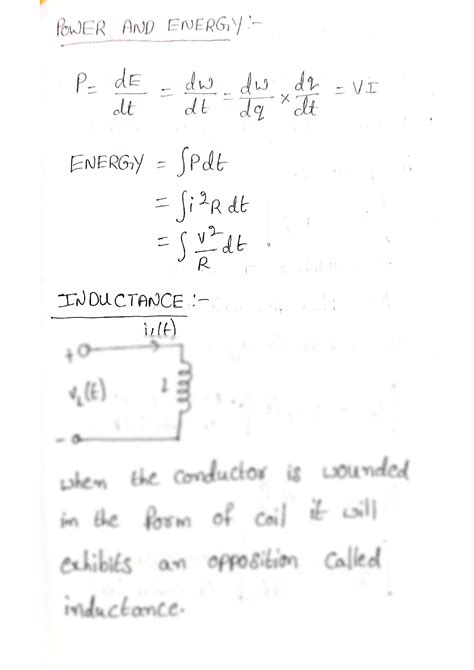 POWER AND ENERGY:-
P = dE/dt = dw/dt = dw/dq × dq/dt = VI
ENERGY = ∫Pdt
= ∫i²R dt
= ∫ V²/R dt.
INDUCTANCE :-
+
v_L(t)
-
when the conductor is wounded
in the form of coil it will
exhibits an opposition called
inductance.